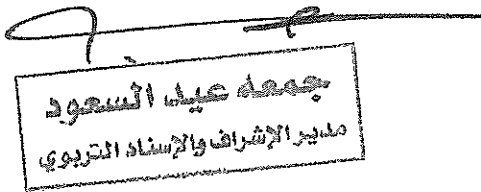 جمعه عيد السعود
مدير الإشراف والإسناد التربوي